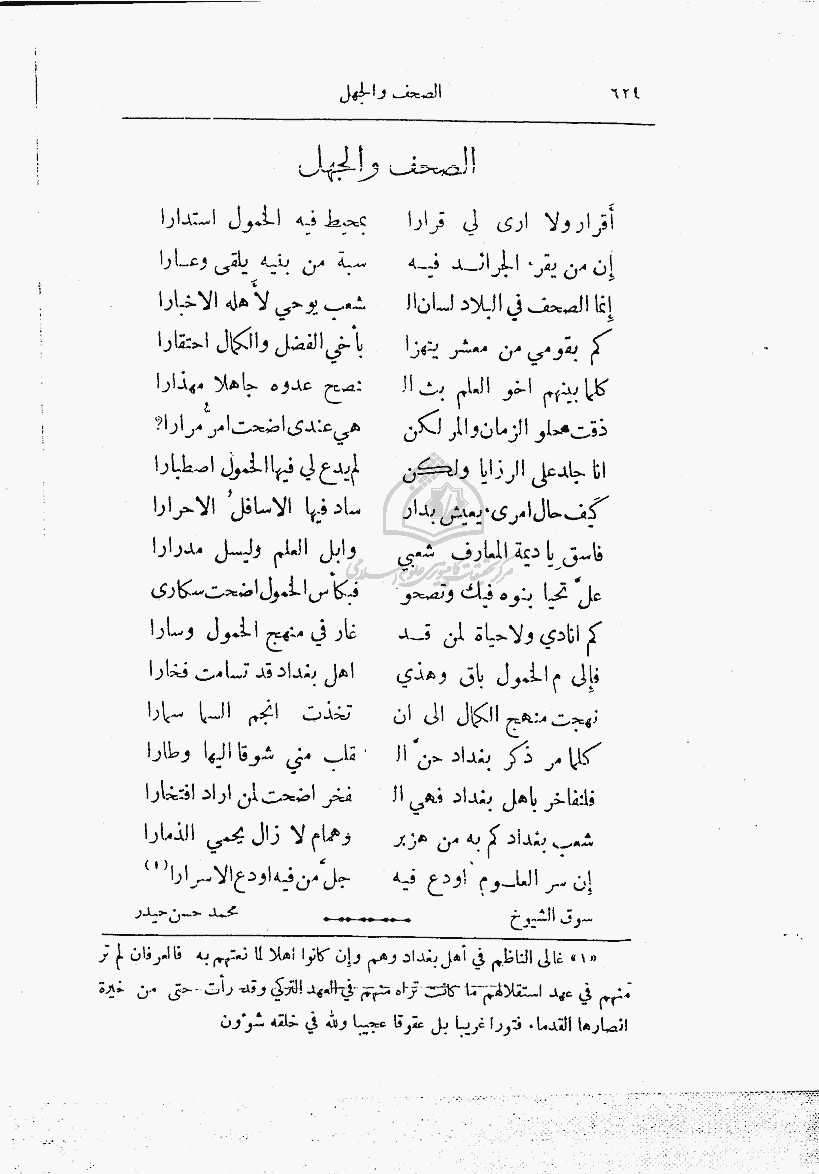 ٦٢٤ الصحف والجهل
الصحف والجهل
أقرار ولا ارى لي قرارا بمحيط فيه الخمول استدارا
إن من يقرء الجرائــد فيــه سبة من بنيه يلقى وعــارا
إنما الصحف في البلاد لسان ال شعب يوحي لأهله الاخبارا
كم بقومي من معشر يتهزا بأخي الفضل والكمال احتقارا
كلما بينهم اخو العلم بث ال نصح عدوه جاهلا مهذارا
ذقت حلو الزمان والمر لكن هي عندى اضحت امرّ مرارا؟
انا جلد على الرزايا ولكن لم يدع لي فيها الخمول اصطبارا
كيف حال امرىء يعيش بدار ساد فيها الاسافلُ الاحرارا
فاسق يا ديمة المعارف شعبي وابل العلم وليسل مدرارا
علّ تحيا بنوه فيك وتصحو فبكأس الخمول اضحت سكارى
كم انادي ولا حياة لمن قــد غار في منهج الخمول وسارا
فإلى م الخمول باق وهذي اهل بغداد قد تسامت فخارا
نهجت منهج الكمال الى ان تخذت انجم السما سمارا
كلما مر ذكر بغداد حنّ ال قلب مني شوقا اليها وطارا
فلنفاخر باهل بغداد فهي ال فخر اضحت لمن اراد افتخارا
شعب بغداد كم به من هزبر وهمام لا زال يحمي الذمارا
إن سر العلــوم اودع فيه جلّ من فيه اودع الاسرارا (١)
سوق الشيوخ محمد حسن حيدر
«١» غالى الناظم في أهل بغداد وهم وإن كانوا اهلا لما نعتهم به فالعرفان لم تر
منهم في عهد استقلالهم ما كانت تراه منهم في العهد التركي وقد رأت حتى من خيرة
انصارها القدماء فتورا غريبا بل عقوقا عجيبا ولله في خلقه شؤون